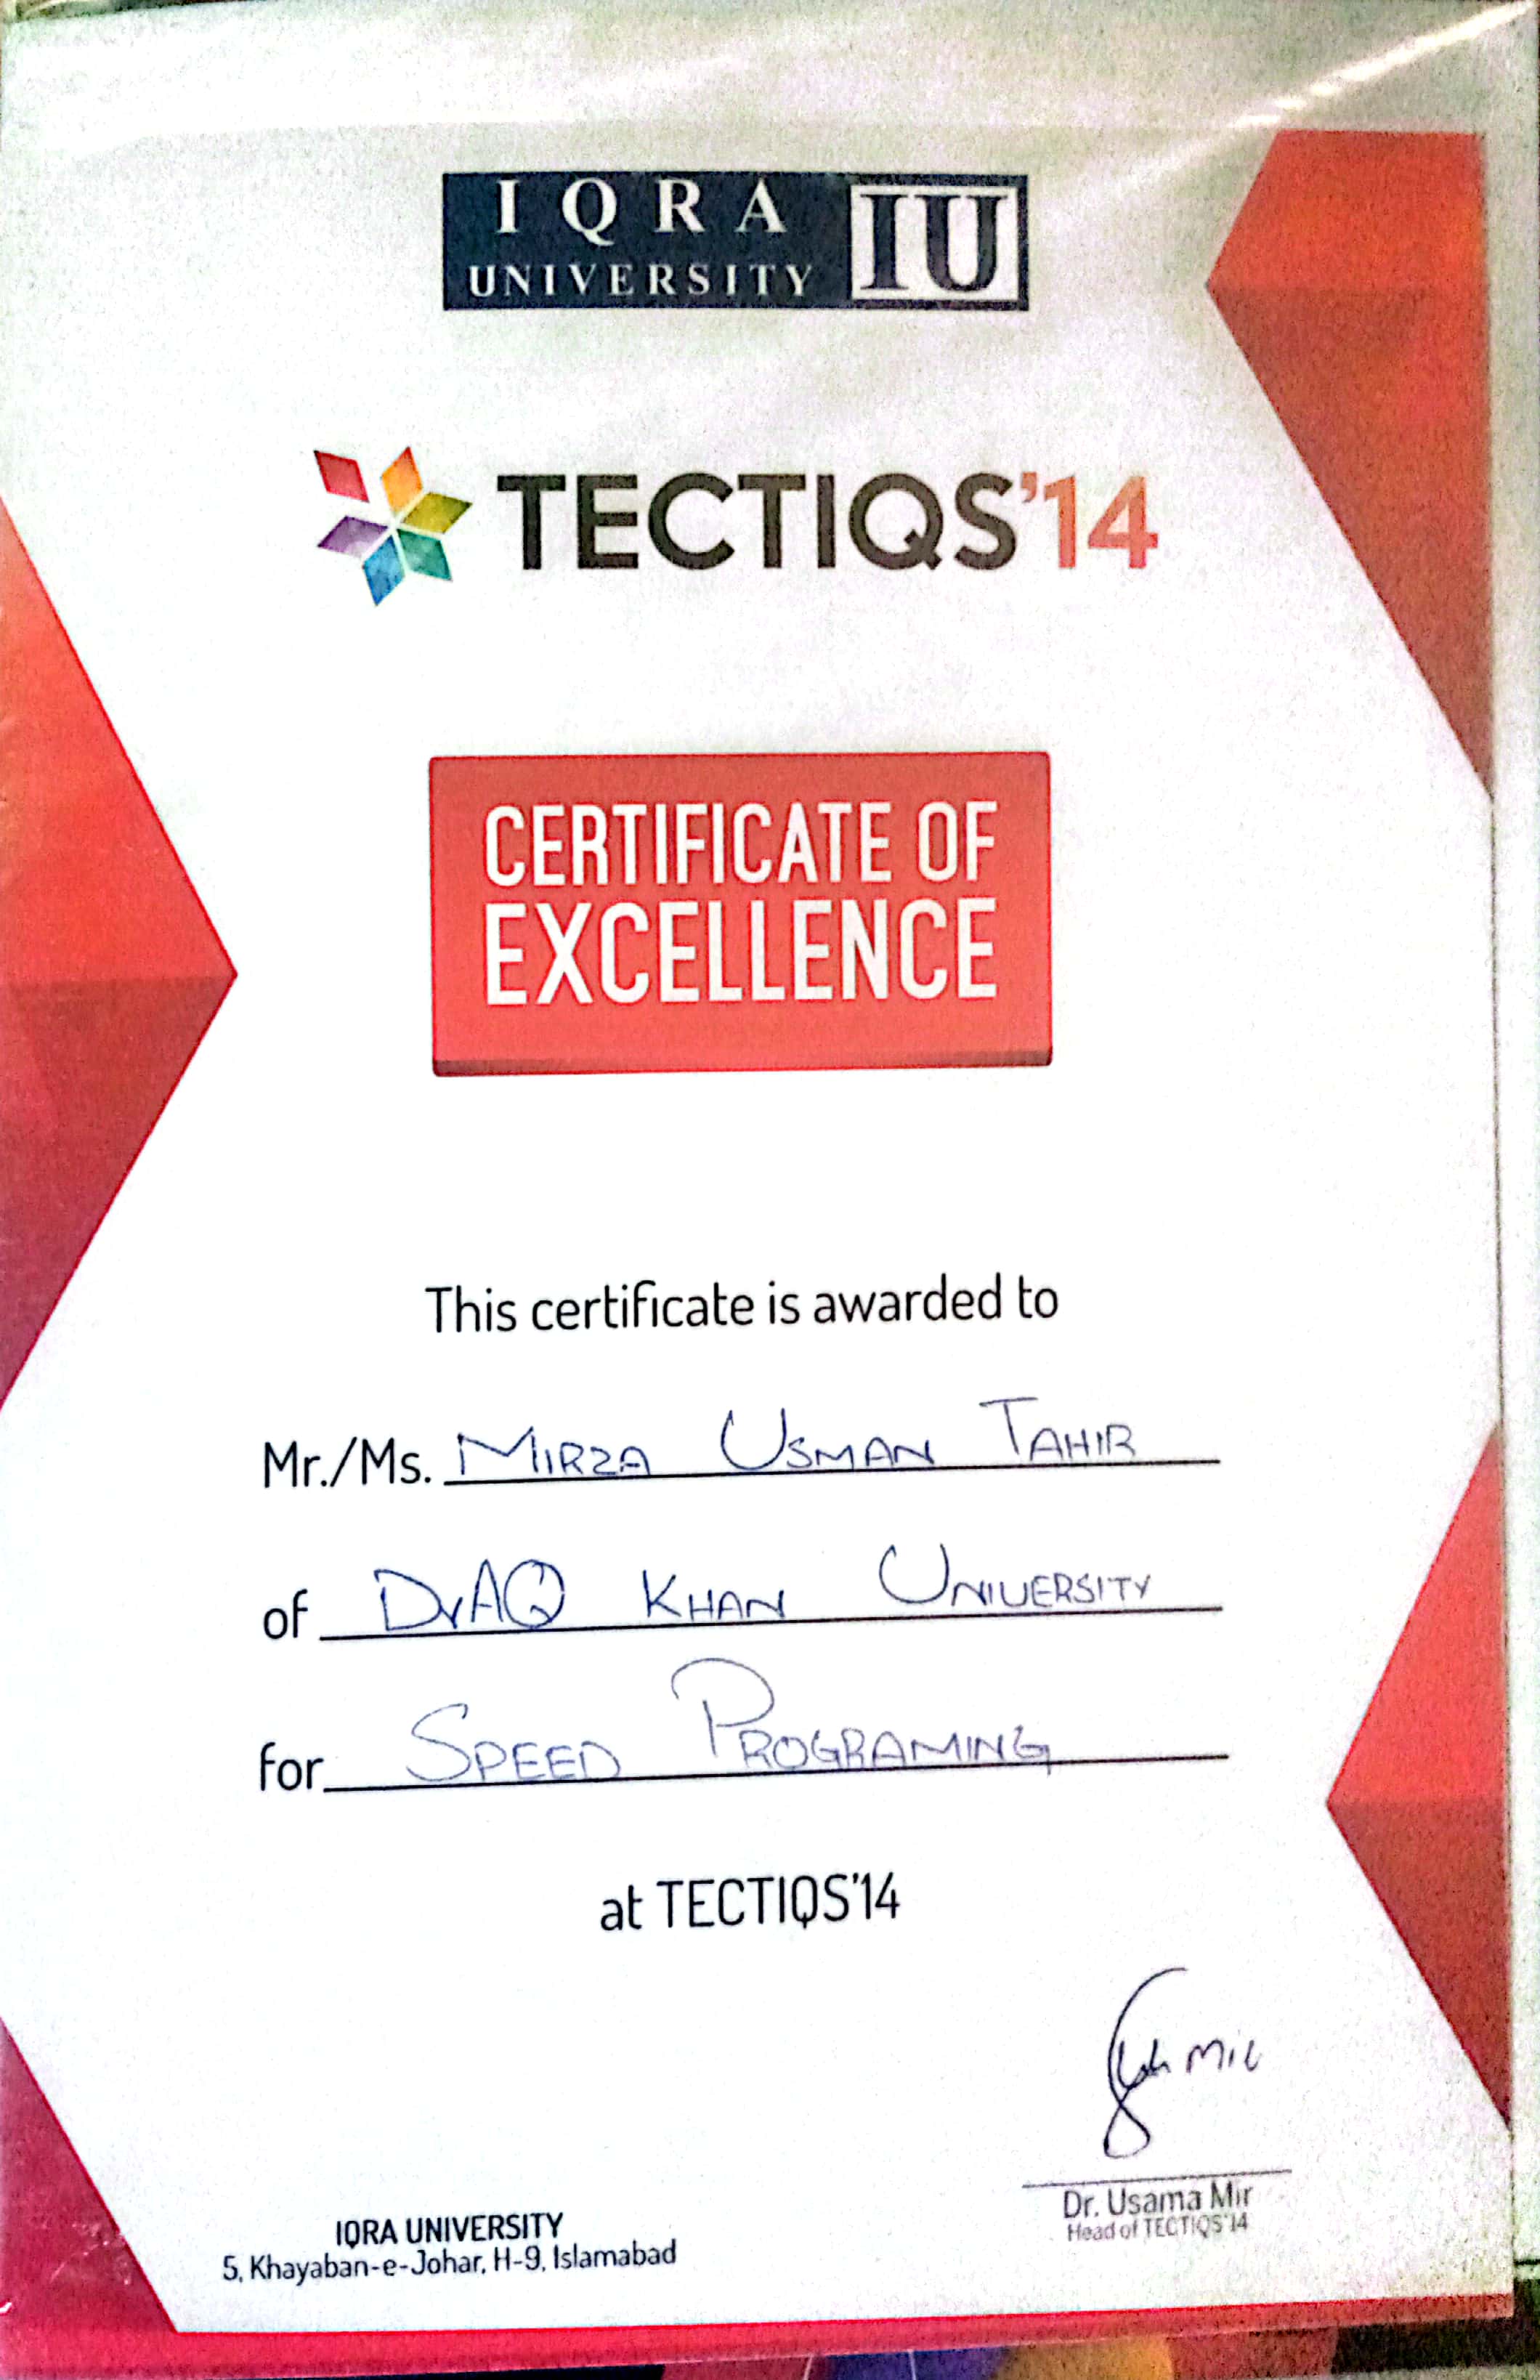 IQRA
UNIVERSITY
IU
TECTIQS'14
CERTIFICATE OF
EXCELLENCE
This certificate is awarded to
Mr./Ms. MIRZA USMAN TAHIR
of Dr AQ KHAN UNIVERSITY
for SPEED PROGRAMING
at TECTIQS'14
Mir
Dr. Usama Mir
Head of TECTIQS'14
IQRA UNIVERSITY
5, Khayaban-e-Johar, H-9, Islamabad